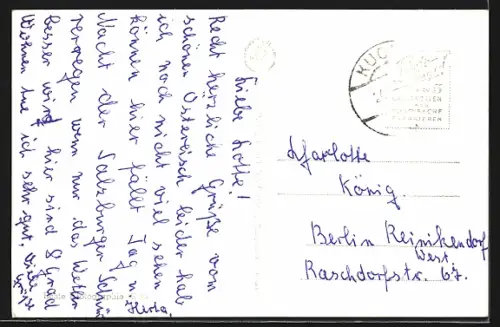 Liebe Lotte!
Recht herzliche Grüße vom
schönen Österreich leider hab
ich noch nicht viel sehen
können hier fällt Tag u.
Nacht der Salzburger Schnü
regen wenn nur das Wetter
besser wird hier sind 8 Grad
Wohnen tue ich sehr gut. Viele
Grüße
Herta.
KUC
Charlotte
König
Berlin Reinikendorf
West.
Raschdorfstr. 67.